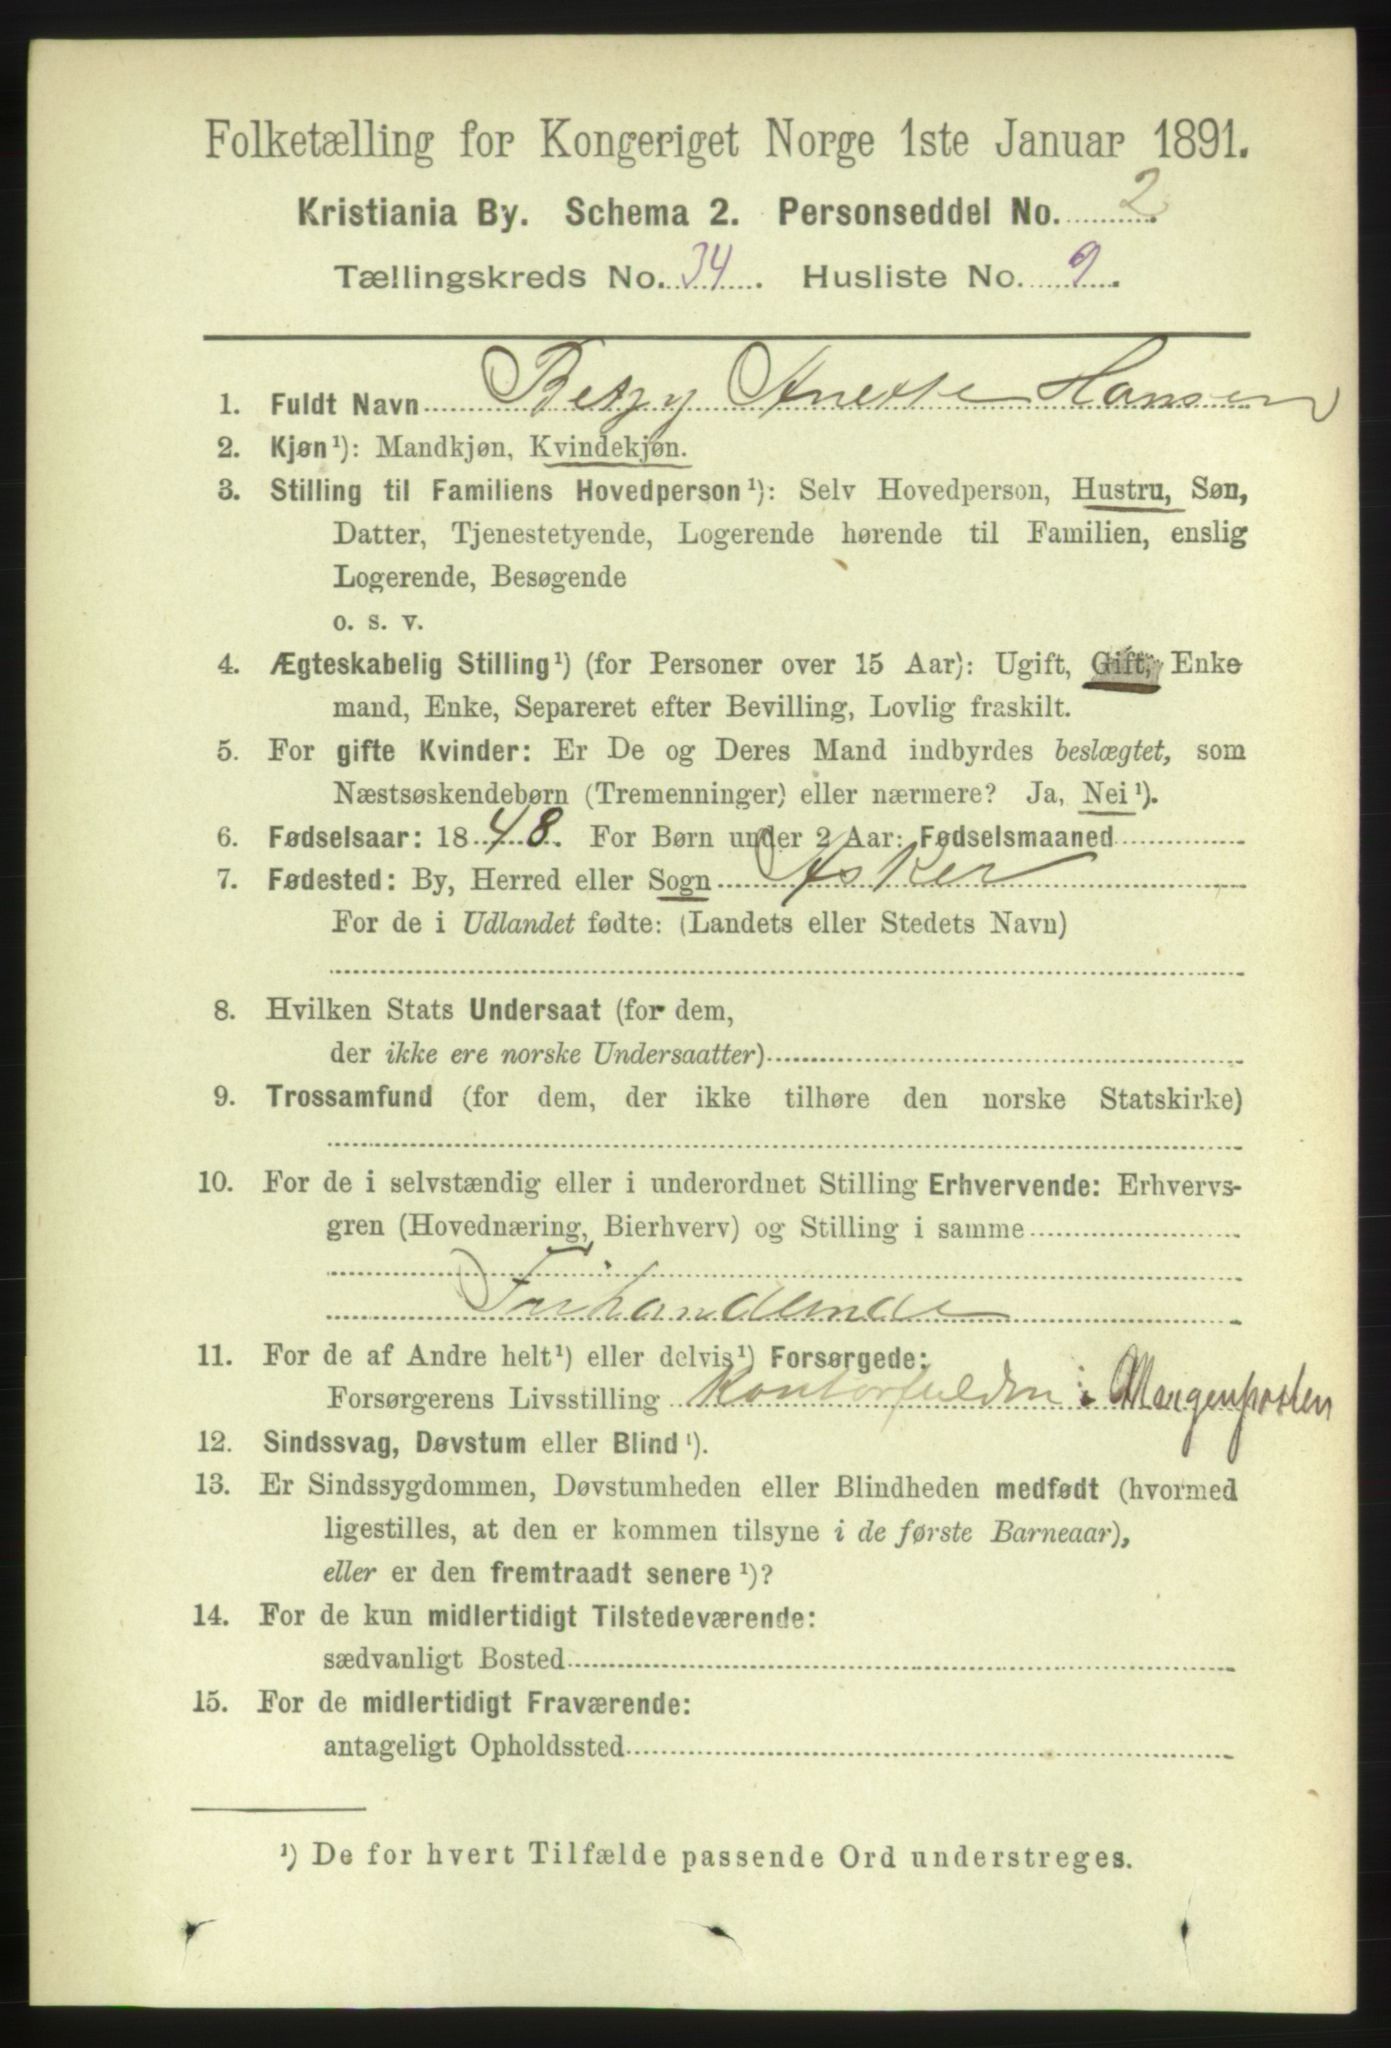 Folketælling for Kongeriget Norge 1ste Januar 1891.
Kristiania By. Schema 2. Personseddel No. 2.
Tællingskreds No. 34. Husliste No. 9.
1. Fuldt Navn Betzy Anette Hansen
2. Kjøn¹): Mandkjøn, Kvindekjøn.
3. Stilling til Familiens Hovedperson¹): Selv Hovedperson, Hustru, Søn,
Datter, Tjenestetyende, Logerende hørende til Familien, enslig
Logerende, Besøgende
o. s. v.
4. Ægteskabelig Stilling¹) (for Personer over 15 Aar): Ugift, Gift, Enke
mand, Enke, Separeret efter Bevilling, Lovlig fraskilt.
5. For gifte Kvinder: Er De og Deres Mand indbyrdes beslægtet, som
Næstsøskendebørn (Tremenninger) eller nærmere? Ja, Nei¹).
6. Fødselsaar: 1848. For Børn under 2 Aar: Fødselsmaaned
7. Fødested: By, Herred eller Sogn Asker
For de i Udlandet fødte: (Landets eller Stedets Navn)
8. Hvilken Stats Undersaat (for dem,
der ikke ere norske Undersaatter)
9. Trossamfund (for dem, der ikke tilhøre den norske Statskirke)
10. For de i selvstændig eller i underordnet Stilling Erhvervende: Erhvervs-
gren (Hovednæring, Bierhverv) og Stilling i samme
11. For de af Andre helt¹) eller delvis¹) Forsørgede:
Forsørgerens Livsstilling i Morgenposten
12. Sindssvag, Døvstum eller Blind¹).
13. Er Sindssygdommen, Døvstumheden eller Blindheden medfødt (hvormed
ligestilles, at den er kommen tilsyne i de første Barneaar),
eller er den fremtraadt senere¹)?
14. For de kun midlertidigt Tilstedeværende:
sædvanligt Bosted
15. For de midlertidigt Fraværende:
antageligt Opholdssted
¹) De for hvert Tilfælde passende Ord understreges.